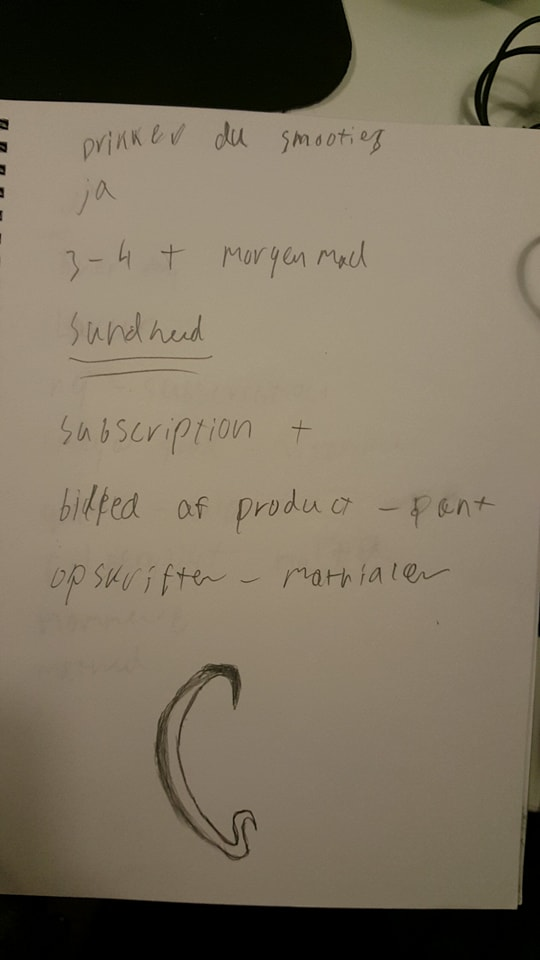 Drikker du smooties
ja
3-4 + morgenmad
Sundhed
subscription +
af product - pant
opskrifter - mathialer